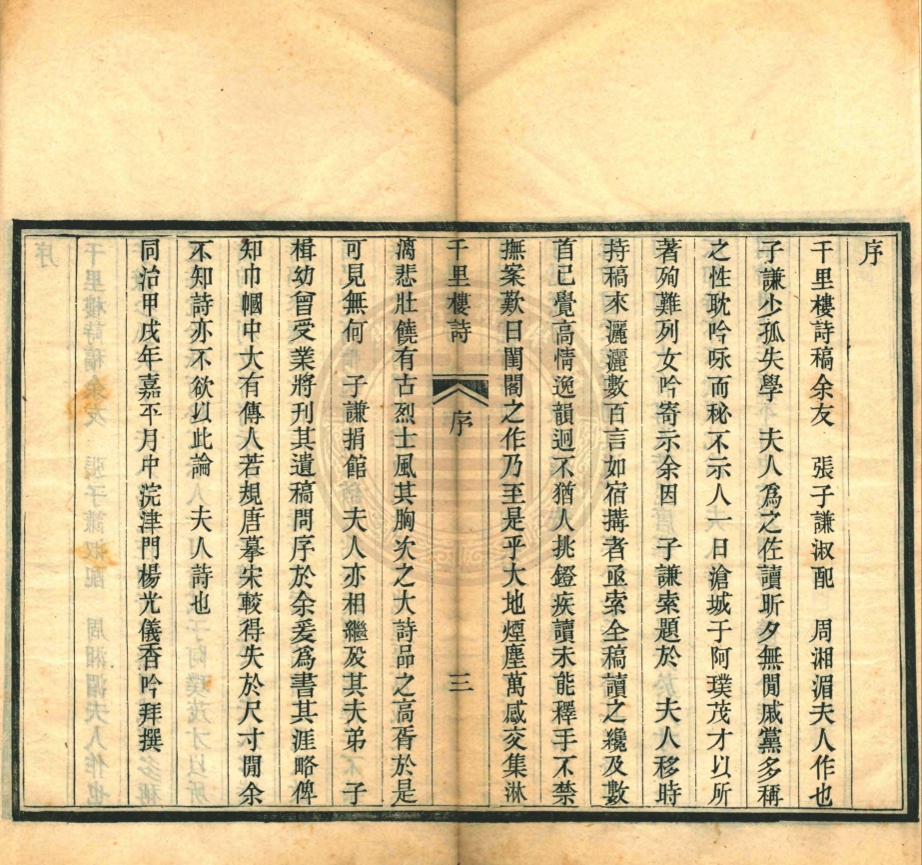 序
千里樓詩稿余友　張子謙淑配　周湘湄夫人作也
子謙少孤失學　夫人爲之佐讀昕夕無閒戚黨多稱
之性耽吟咏而秘不示人一日滄城于阿璞茂才以所
著殉難列女吟寄示余因　子謙索題於　夫人移時
持稿來灑灑數百言如宿搆者亟索全稿讀之纔及數
首已覺高情逸韻迥不猶人挑鐙疾讀未能釋手不禁
撫案歎曰閨閣之作乃至是乎大地煙塵萬感交集淋
千里樓詩　序　三
漓悲壯饒有古烈士風其胸次之大詩品之高胥於是
可見無何　子謙捐館　夫人亦相繼歿其夫弟　子
楫幼曾受業將刊其遺稿問序於余爰爲書其涯略俾
知巾幗中大有傳人若規唐摹宋較得失於尺寸閒余
不知詩亦不欲以此論　夫人詩也
同治甲戌年嘉平月中浣津門楊光儀香吟拜撰